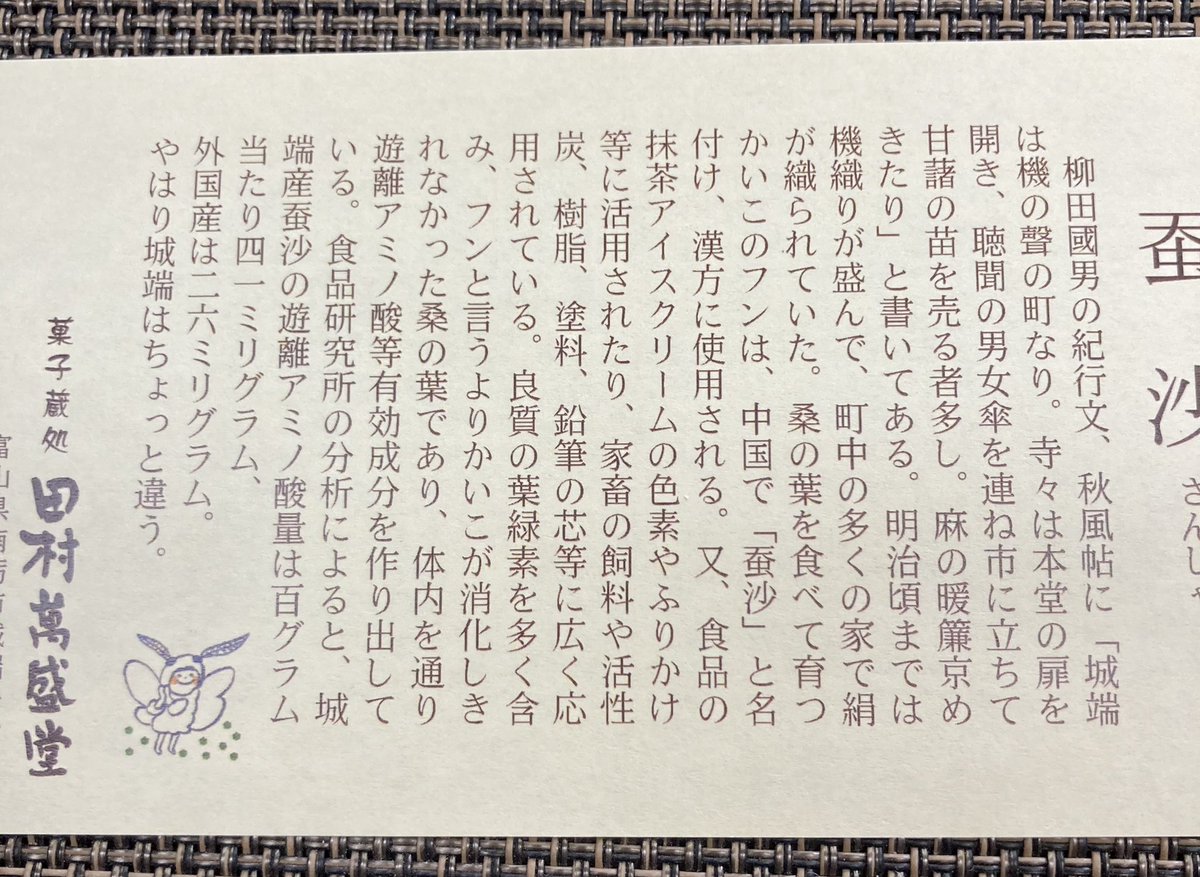 蚕沙
さんしゃ
柳田國男の紀行文、秋風帖に「城端
は機の聲の町なり。寺々は本堂の扉を
開き、聴聞の男女傘を連ね市に立ちて
甘藷の苗を売る者多し。麻の暖簾京め
きたり」と書いてある。明治頃までは
機織りが盛んで、町中の多くの家で絹
が織られていた。桑の葉を食べて育つ
かいこのフンは、中国で「蚕沙」と名
付け、漢方に使用される。又、食品の
抹茶アイスクリームの色素やふりかけ
等に活用されたり、家畜の飼料や活性
炭、樹脂、塗料、鉛筆の芯等に広く応
用されている。良質の葉緑素を多く含
み、フンと言うよりかいこが消化しき
れなかった桑の葉であり、体内を通り
遊離アミノ酸等有効成分を作り出して
いる。食品研究所の分析によると、城
端産蚕沙の遊離アミノ酸量は百グラム
当たり四一ミリグラム、
外国産は二六ミリグラム。
やはり城端はちょっと違う。
菓子蔵処
田村萬盛堂
富山県南砺市